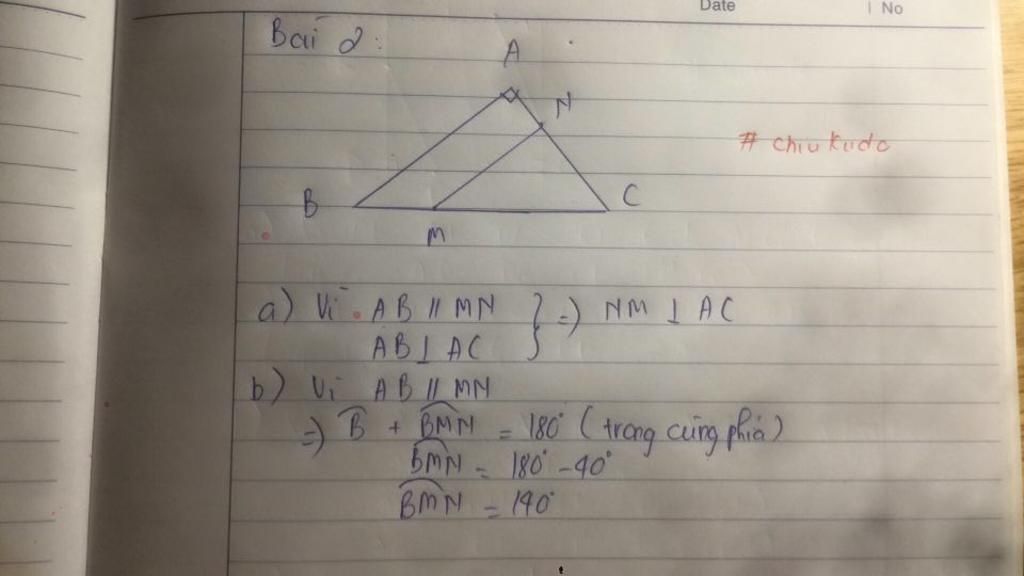 Date No
Bài 2:
A
N
# chiukudo
B
C
M
a) Vì AB // MN } => NM ⊥ AC
AB ⊥ AC
b) Vì AB // MN
=> B̂ + BMN̂ = 180° (trong cùng phía)
BMN̂ = 180° - 40°
BMN̂ = 140°